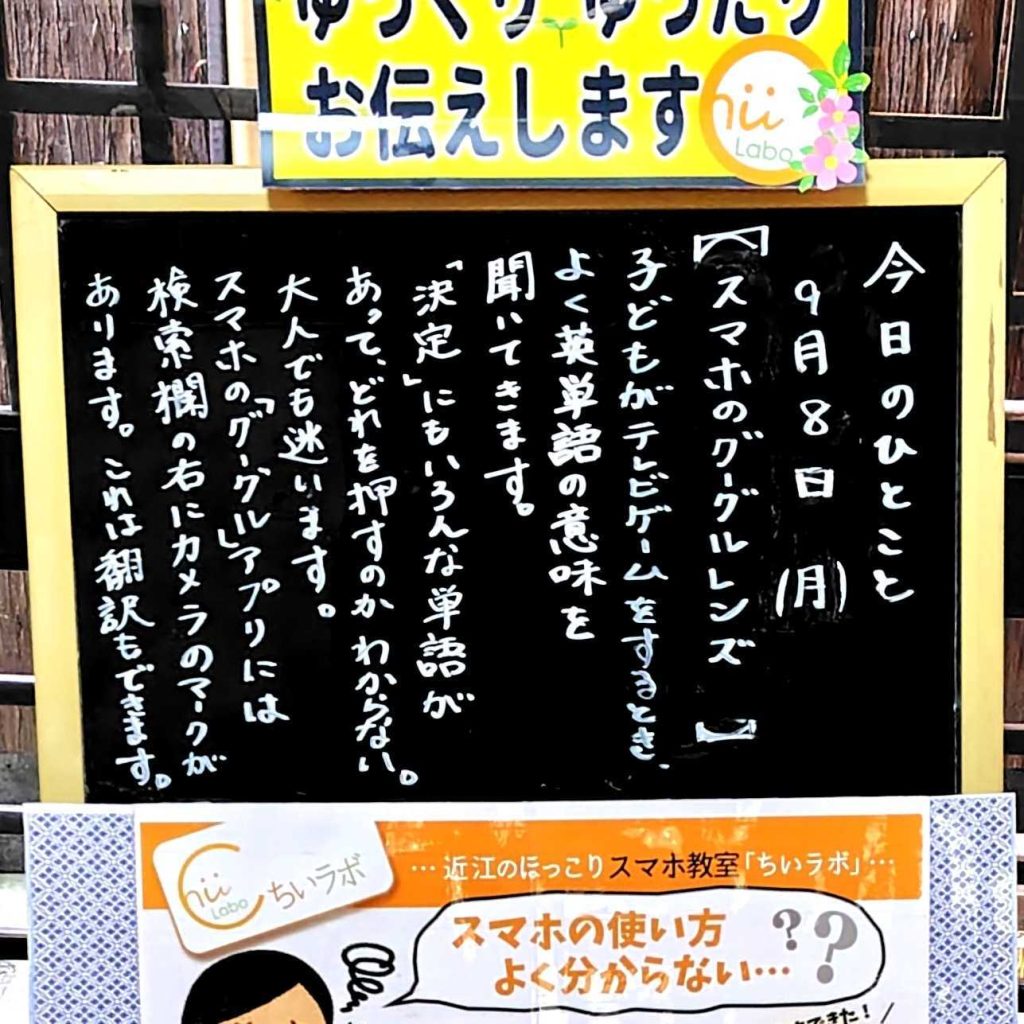 ゆっくり ゆったり
お伝えします
hii
Labo
今日のひとこと
9月8日(月)
【スマホのグーグルレンズ】
子どもがテレビゲームをするとき、
よく英単語の意味を
聞いてきます。
「決定」にもいろんな単語が
あって、どれを押すのかわからない。
大人でも迷います。
スマホの「グーグル」アプリには
検索欄の右にカメラのマークが
あります。これは翻訳もできます。
Chii
Labo
ちいラボ
…近江のほっこりスマホ教室「ちいラボ」…
スマホの使い方
よく分からない…??
できた!